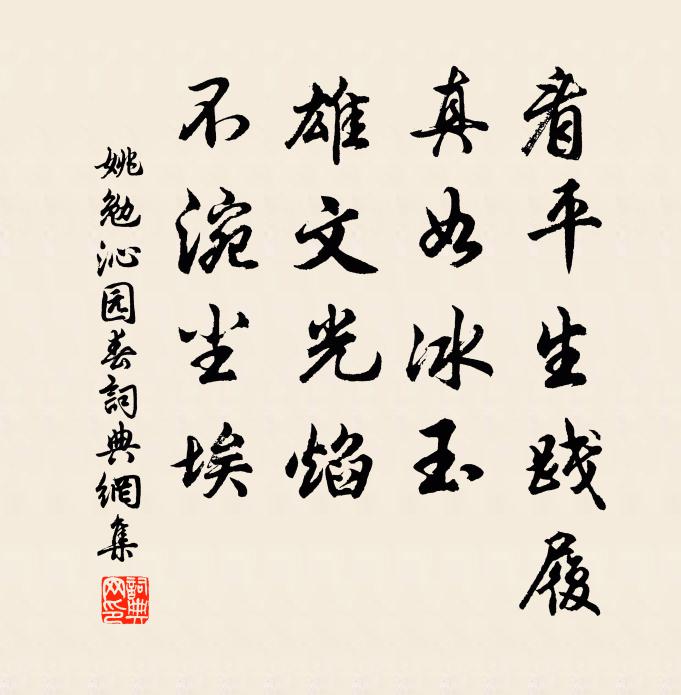 看平生践履
真如冰玉
雄文光焰
不涴尘埃
姚勉沁园春詞典網集
詞典网印